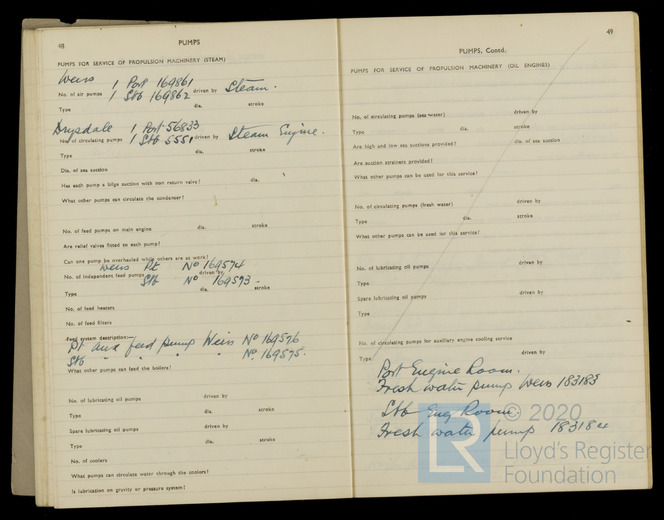 48
PUMPS
PUMPS FOR SERVICE OF PROPULSION MACHINERY (STEAM)
Weirs 1 Port 169861
No. of air pumps 1 Stb 169862 driven by Steam.
Type dia. stroke
Drysdale 1 Port 56833
No. of circulating pumps 1 Stb 5551 driven by Steam Engine.
Type dia. stroke
Dia. of sea suction
Has each pump a bilge suction with non return valve? dia.
What other pumps can circulate the condenser?
No. of feed pumps on main engine dia. stroke
Are relief valves fitted to each pump?
Can one pump be overhauled while others are at work?
Weirs Pt No 169574
No. of independent feed pumps Stb No 169573 - driven by
Type dia. stroke
No. of feed heaters
No. of feed filters
Feed system description:—
Pt aux feed pump Weirs No 169576
Stb " " " " No 169575.
What other pumps can feed the boilers?
No. of lubricating oil pumps driven by
Type dia. stroke
Spare lubricating oil pumps driven by
Type dia. stroke
No. of coolers
What pumps can circulate water through the coolers?
Is lubrication on gravity or pressure system?
49
PUMPS, Contd.
PUMPS FOR SERVICE OF PROPULSION MACHINERY (OIL ENGINES)
No. of circulating pumps (sea water) driven by
Type dia. stroke
Are high and low sea suctions provided? dia. of sea suction
Are suction strainers provided?
What other pumps can be used for this service?
No. of circulating pumps (fresh water) driven by
Type dia. stroke
What other pumps can be used for this service?
No. of lubricating oil pumps driven by
Type
Spare lubricating oil pumps driven by
Type
No. of circulating pumps for auxiliary engine cooling service
Type driven by
Port Engine Room.
Fresh water pump Weirs 183183
Stb Eng Room.
Fresh water pump 183184
LR © 2020
Lloyd's Register
Foundation